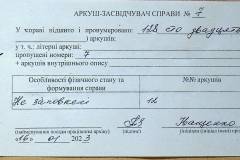 АРКУШ-ЗАСВІДЧУВАЧ СПРАВИ № 7
У справі підшито і пронумеровано: 128 сто двадцять
) аркушів;
у т. ч.: літерні аркуші:
пропущені номери: 7
+ аркушів внутрішнього опису
Особливості фізичного стану та формування справи №№ аркушів
Не заповнені 12
(найменування посади працівника архіву) (підпис) (ініціал імені, прізвище)
16 01 2023